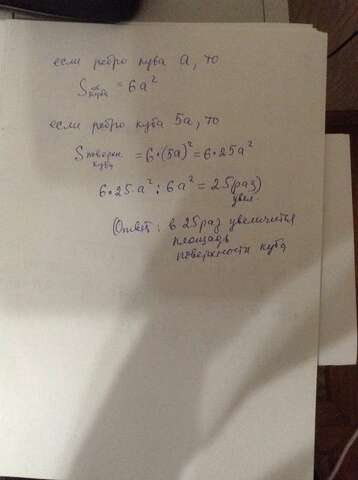 если ребро куба a, то
S куба = 6a²
если ребро куба 5a, то
S поверхн куба = 6·(5a)² = 6·25a²
6·25·a² : 6a² = 25(раз) увел.
Ответ: в 25 раз увеличится
площадь
поверхности куба